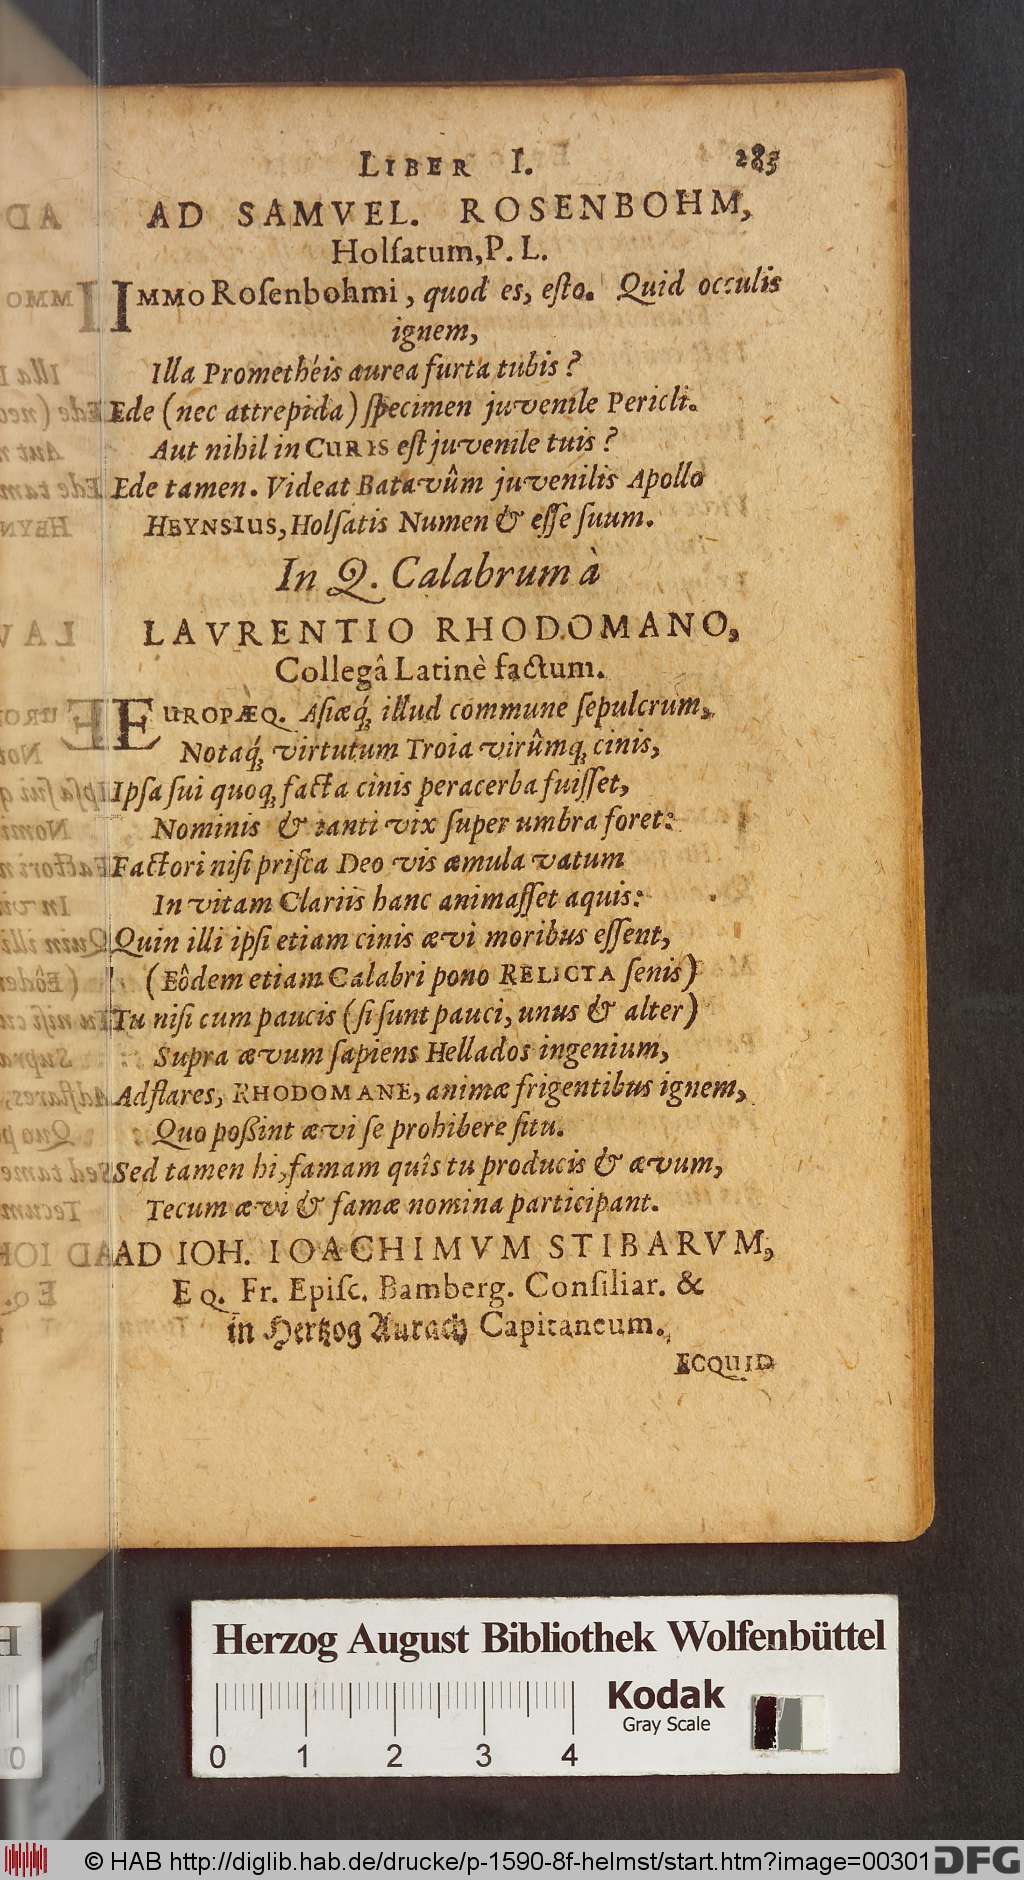 LIBER I. 285
AD SAMVEL. ROSENBOHM,
Holſatum, P. L.
IMMO Roſenbohmi, quod es, eſto. Quid occulis
ignem,
Illa Prometheis aurea furta tubis?
Ede (nec attrepida) ſpecimen juvenile Pericli.
Aut nihil in CURIS eſt juvenile tuis?
Ede tamen. Videat Batavûm juvenilis Apollo
HEYNSIUS, Holſatis Numen & eſſe ſuum.
In Q. Calabrum à
LAVRENTIO RHODOMANO,
Collegâ Latinè factum.
EUROPÆQ. Aſiæq́; illud commune ſepulcrum,
Notaq́; virtutum Troia virûmq; cinis,
Ipſa ſui quoq; facta cinis peracerba fuiſſet,
Nominis & tanti vix ſuper umbra foret:
Factori niſi priſca Deo vis æmula vatum
In vitam Clariis hanc animaſſet aquis:
Quin illi ipſi etiam cinis ævi moribus eſſent,
(Eôdem etiam Calabri pono RELICTA ſenis)
Tu niſi cum paucis (ſi ſunt pauci, unus & alter)
Supra ævum ſapiens Hellados ingenium,
Adflares, RHODOMANE, animæ frigentibus ignem,
Quo poßint ævi ſe prohibere ſitu.
Sed tamen hi, famam quîs tu producis & ævum,
Tecum ævi & famæ nomina participant.
AD IOH. IOACHIMVM STIBARVM,
Eq. Fr. Epiſc. Bamberg. Conſiliar. &
in Hertzog Aurach Capitaneum.
ECQUID
Herzog August Bibliothek Wolfenbüttel
Kodak
Gray Scale
0 1 2 3 4
© HAB http://diglib.hab.de/drucke/p-1590-8f-helmst/start.htm?image=00301 DFG